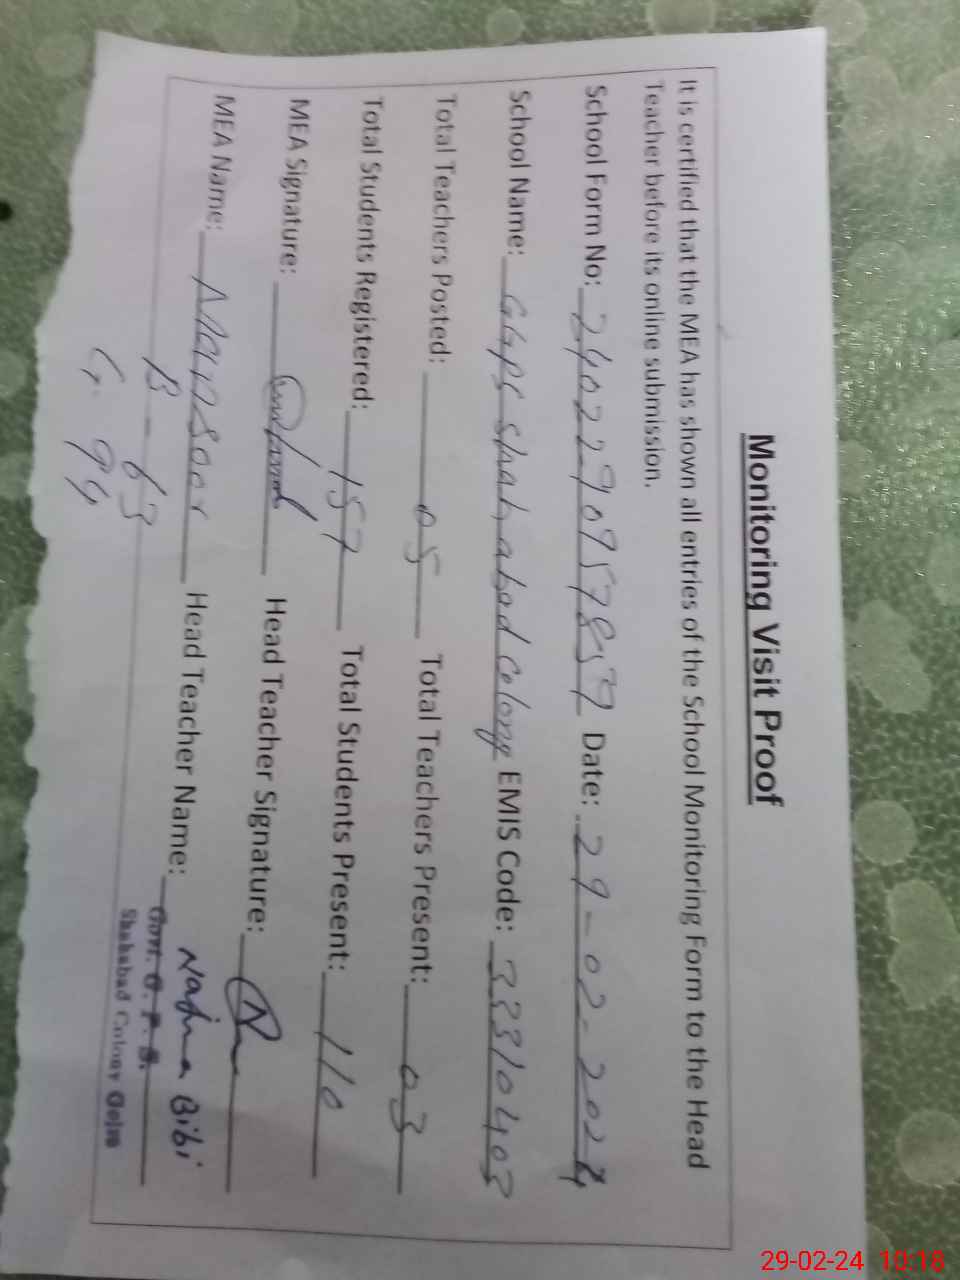 Monitoring Visit Proof
It is certified that the MEA has shown all entries of the School Monitoring Form to the Head
Teacher before its online submission.
School Form No: 2402290957857 Date: 29-02-2024
School Name: GGPS shahabad colony EMIS Code: 33310403
Total Teachers Posted: 05 Total Teachers Present: 03
Total Students Registered: 157 Total Students Present: 110
MEA Signature: Head Teacher Signature:
MEA Name: Mansoor Head Teacher Name: Najma Bibi
B - 63
G. 94
Govt. G. P. S.
Shahabad Colony Gojra
29-02-24 10:18